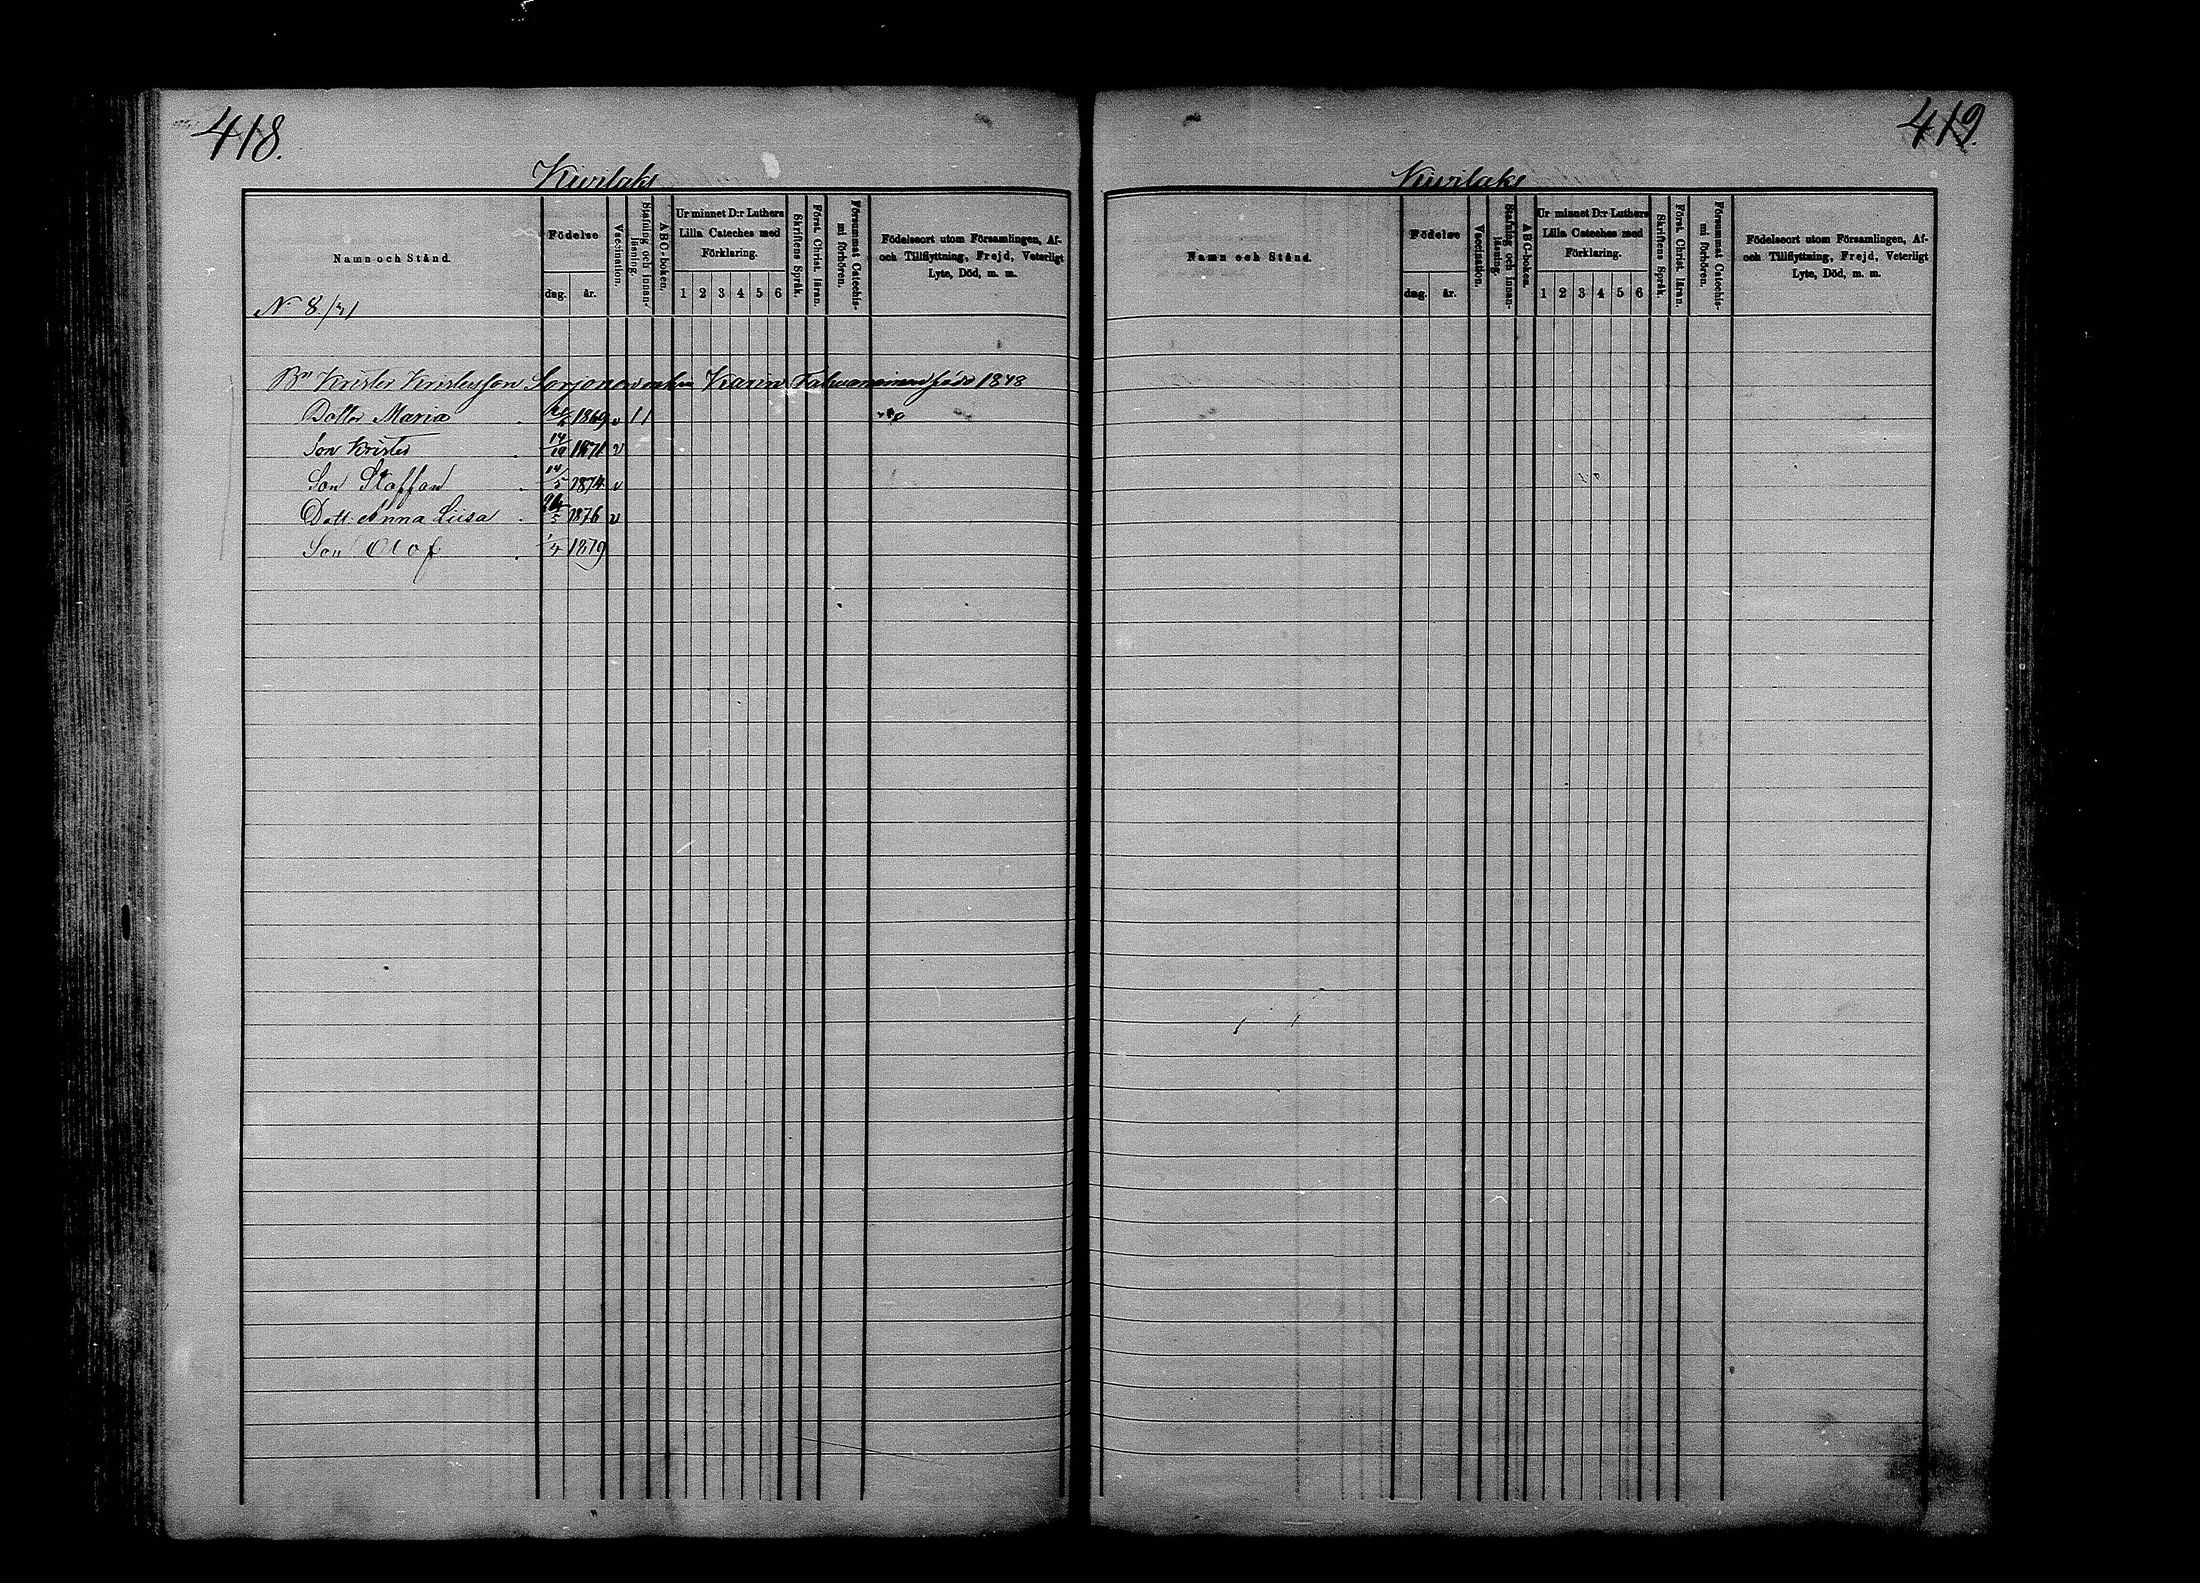 418.
Kurilaks
Namn och Stånd.
Födelse
dag.
år.
Vaccination.
Stafning och innan-
läsning.
ABC-boken.
Ur minnet D:r Luthers
Lilla Cateches med
Förklaring.
1 2 3 4 5 6
Skriftens Språk.
Först. Christ. läran.
Försummat Catechis-
mi förhören.
Födelseort utom Församlingen, Af-
och Tillflyttning, Frejd, Veterligt
Lyte, Död, m. m.
N 8/31
Bn Krister Kristersson Sorjonen enkn Karin född 1848
Dotter Maria 1869 v 11
Son Krister 14/10 1871 v
Son Staffan 14/5 1874 v
Dott. Anna Liisa 1876 v
Son Olof 1879
419.
Kurilaks
Namn och Stånd.
Födelse
dag.
år.
Vaccination.
Stafning och innan-
läsning.
ABC-boken.
Ur minnet D:r Luthers
Lilla Cateches med
Förklaring.
1 2 3 4 5 6
Skriftens Språk.
Först. Christ. läran.
Försummat Catechis-
mi förhören.
Födelseort utom Församlingen, Af-
och Tillflyttning, Frejd, Veterligt
Lyte, Död, m. m.